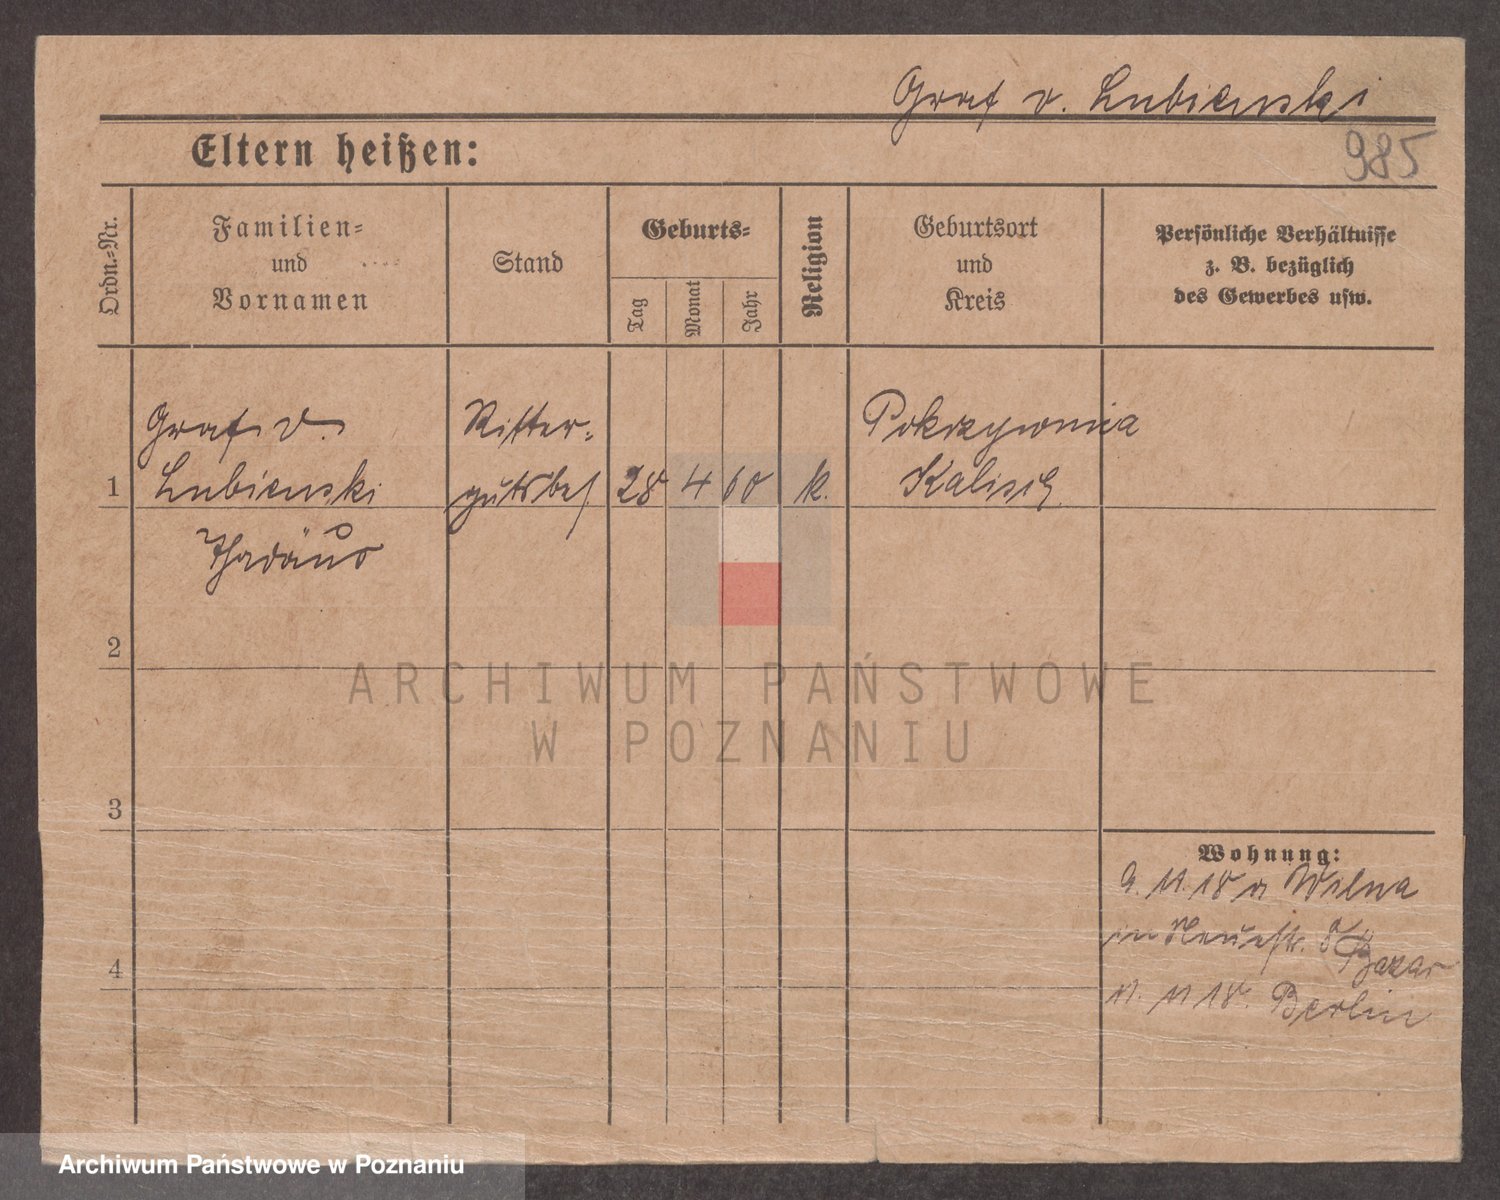 Graf v. Lubienski
985
Eltern heißen:
Ordn.-Nr.
Familien-
und
Vornamen
Stand
Geburts-
Tag
Monat
Jahr
Religion
Geburtsort
und
Kreis
Persönliche Verhältnisse
z. B. bezüglich
des Gewerbes usw.
1
Graf v.
Lubienski
Thadäus
Ritter-
gutsbes.
28
4
60
k.
Pokrzywnica
Kalisch
2
3
4
Wohnung:
9. 11. 18 v Wilna
in Neuestr. Bazar
11. 11 18. Berlin
ARCHIWUM PAŃSTWOWE
W POZNANIU
Archiwum Państwowe w Poznaniu